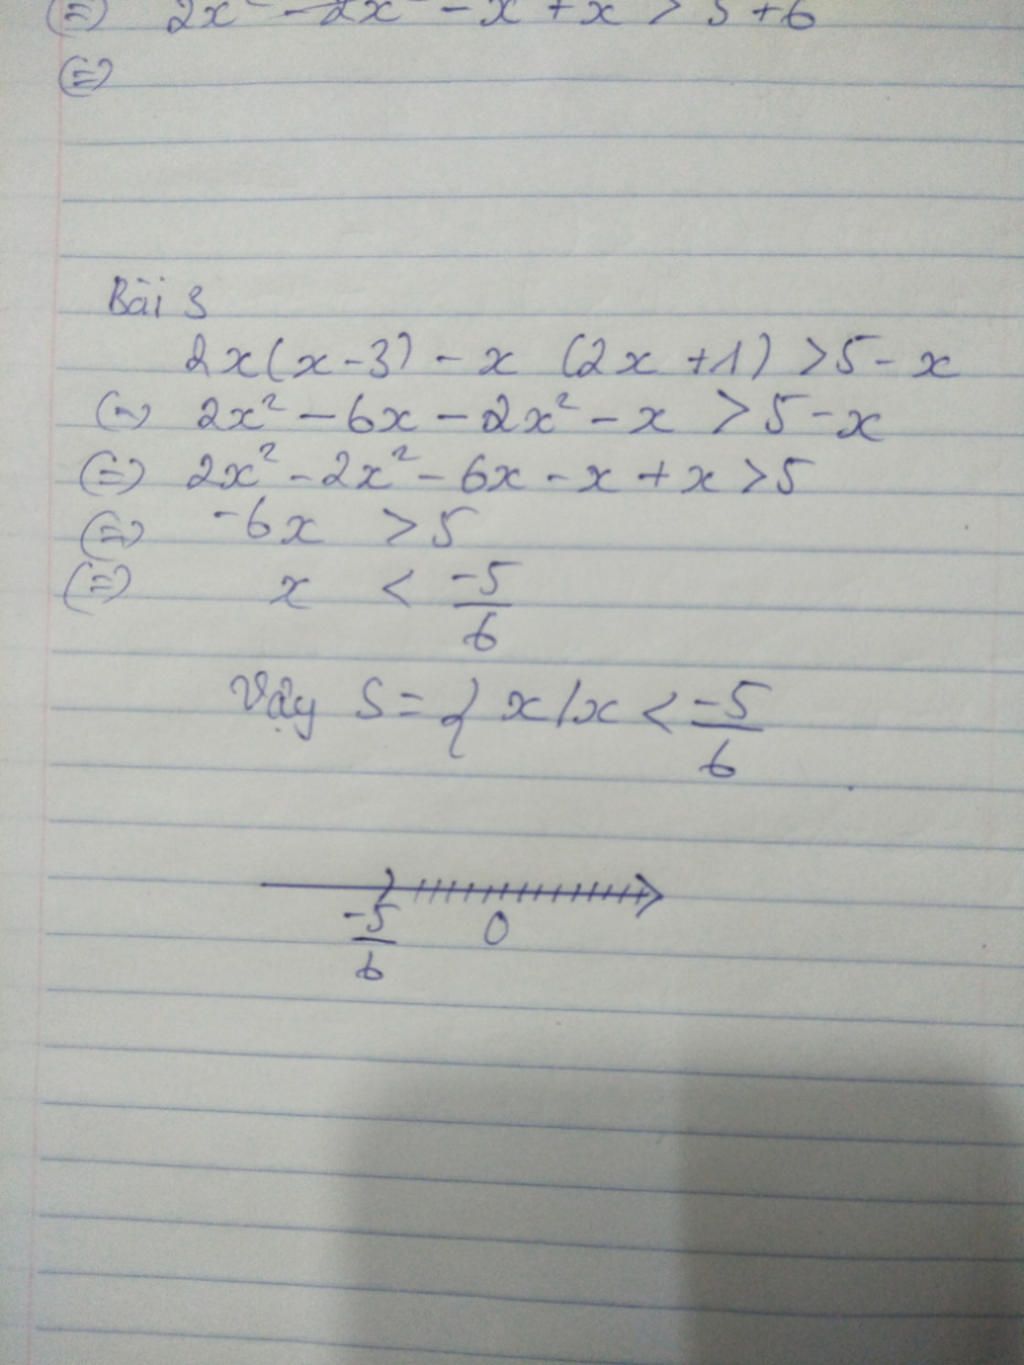 (=) 2x² - 2x² - x + x > 5 + 6
(=)
Bài 3
2x(x-3) - x (2x +1) >5 - x
(=) 2x² - 6x - 2x² - x > 5 - x
(=) 2x² - 2x² - 6x - x + x > 5
(=) -6x > 5
(=) x < -5/6
Vậy S = { x/x < -5/6
-5/6 0